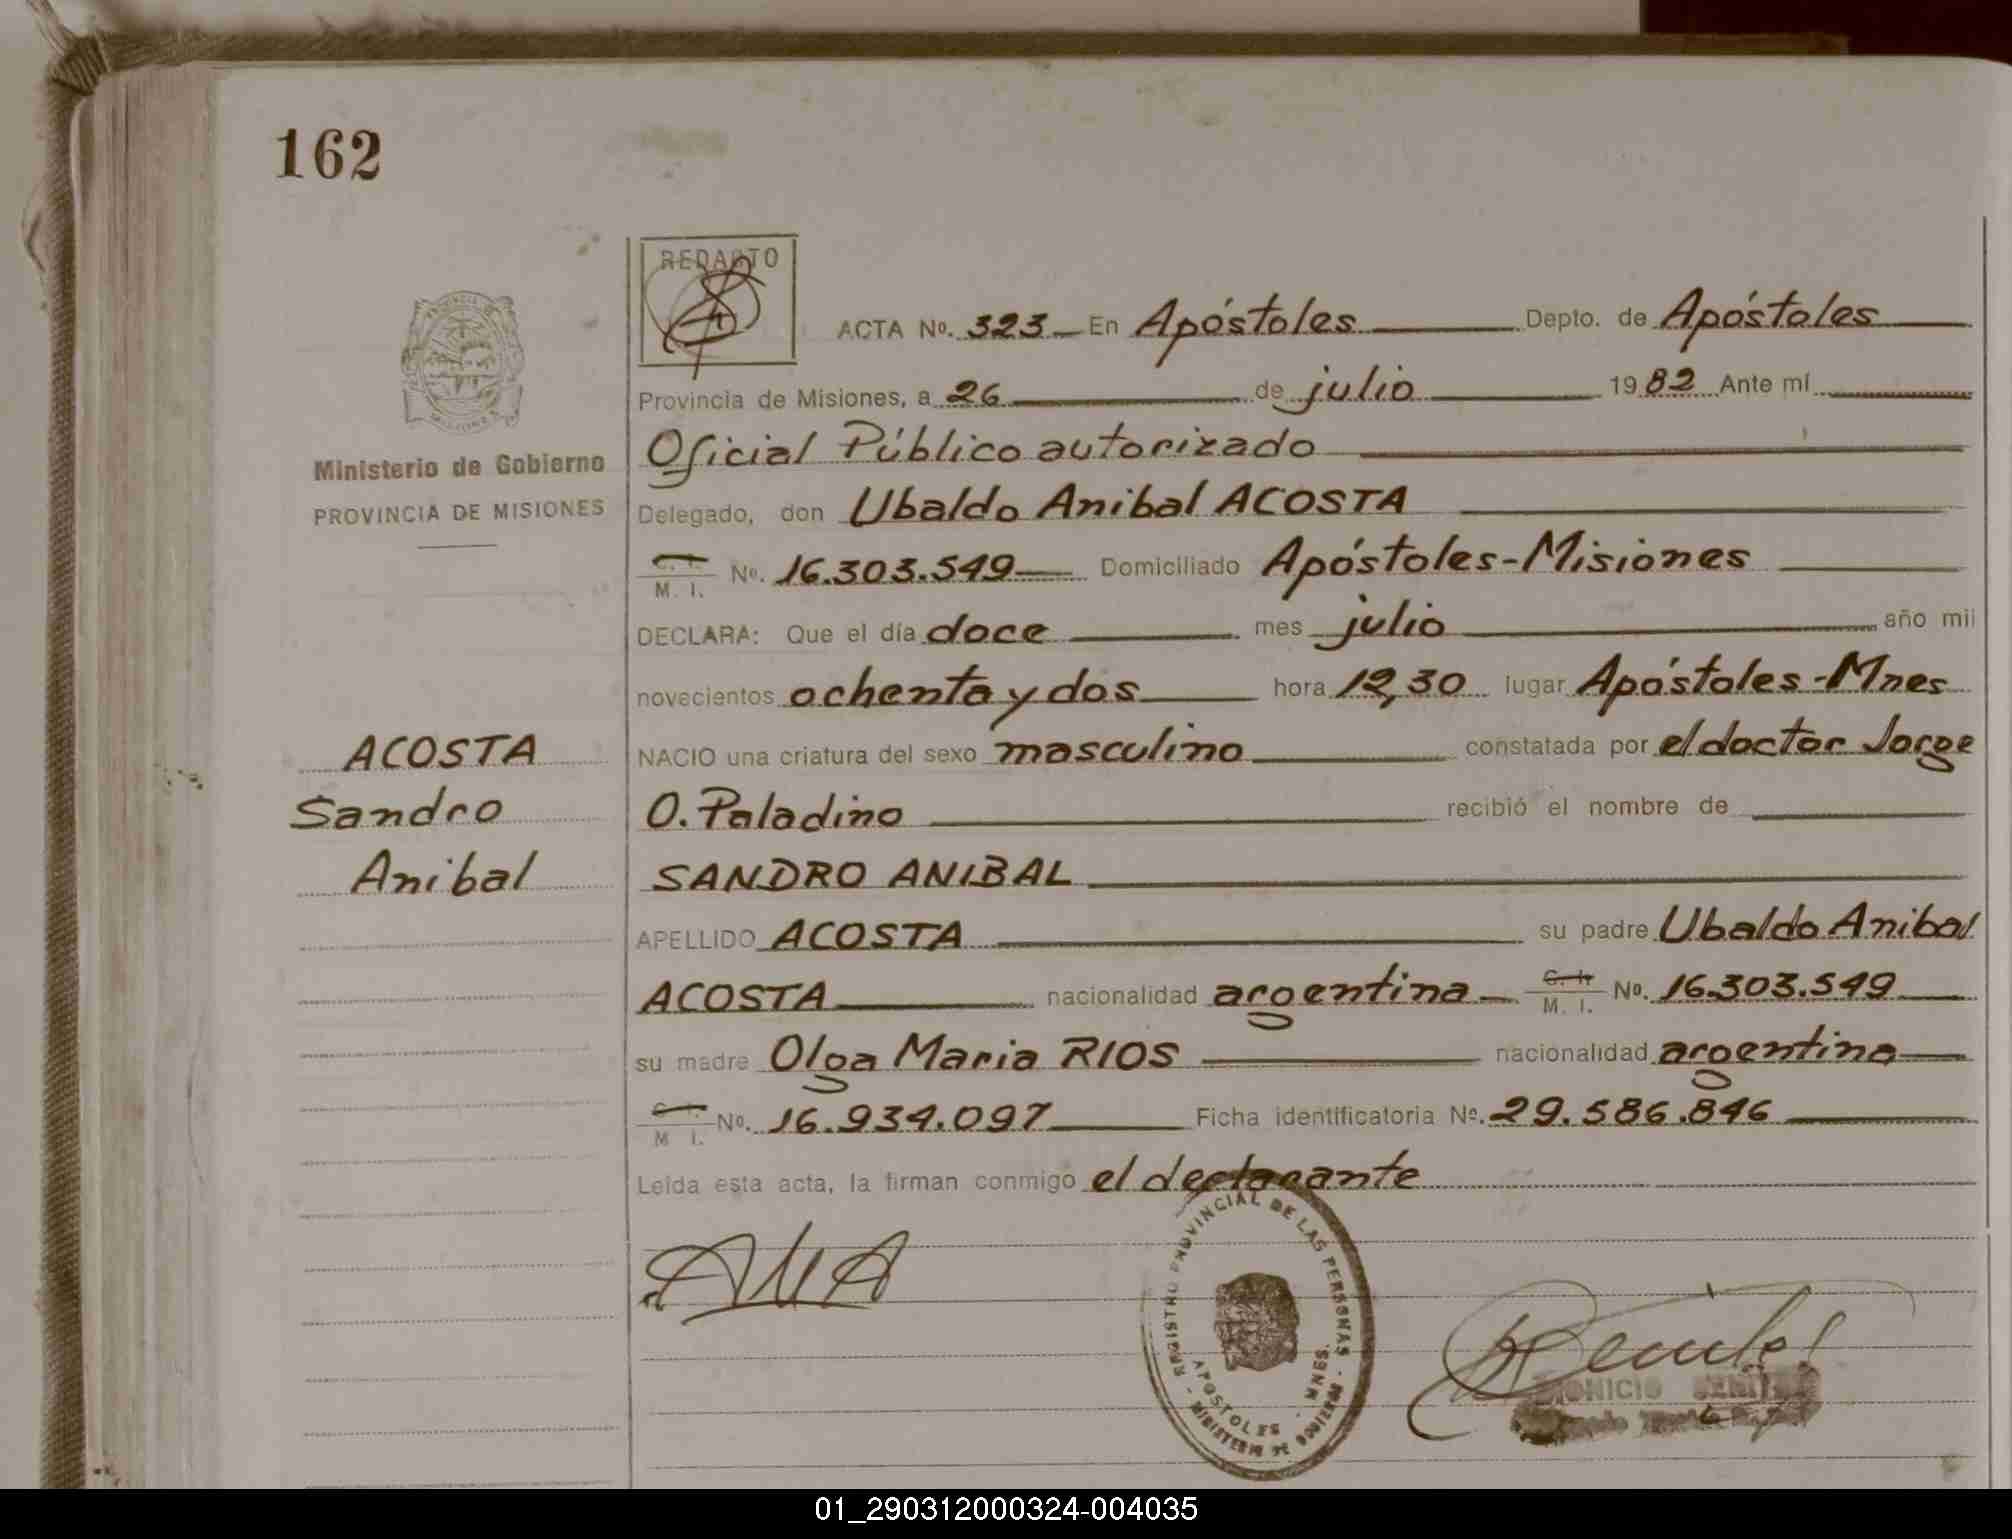 162
REDACTO
ACTA Nº. 323 En Apóstoles Depto. de Apóstoles
Provincia de Misiones, a 26 de julio 1982 Ante mí
Oficial Público autorizado
Ministerio de Gobierno
PROVINCIA DE MISIONES
Delegado, don Ubaldo Anibal ACOSTA
C. I.
M. I. Nº. 16.303.549 Domiciliado Apóstoles-Misiones
DECLARA: Que el día doce mes julio año mil
novecientos ochenta y dos hora 12,30 lugar Apóstoles-Mnes
ACOSTA
Sandro
Anibal
NACIO una criatura del sexo masculino constatada por el doctor Jorge
O. Paladino recibió el nombre de
SANDRO ANIBAL
APELLIDO ACOSTA su padre Ubaldo Anibal
ACOSTA nacionalidad argentina C. I. M. I. Nº. 16.303.549
su madre Olga Maria RIOS nacionalidad argentina
C. I.
M. I. Nº. 16.934.097 Ficha identificatoria Nº. 29.586.846
Leída esta acta, la firman conmigo el declarante
REGISTRO PROVINCIAL DE LAS PERSONAS
- MINISTERIO DE GOBIERNO -
APOSTOLES - MNES.
01_290312000324-004035